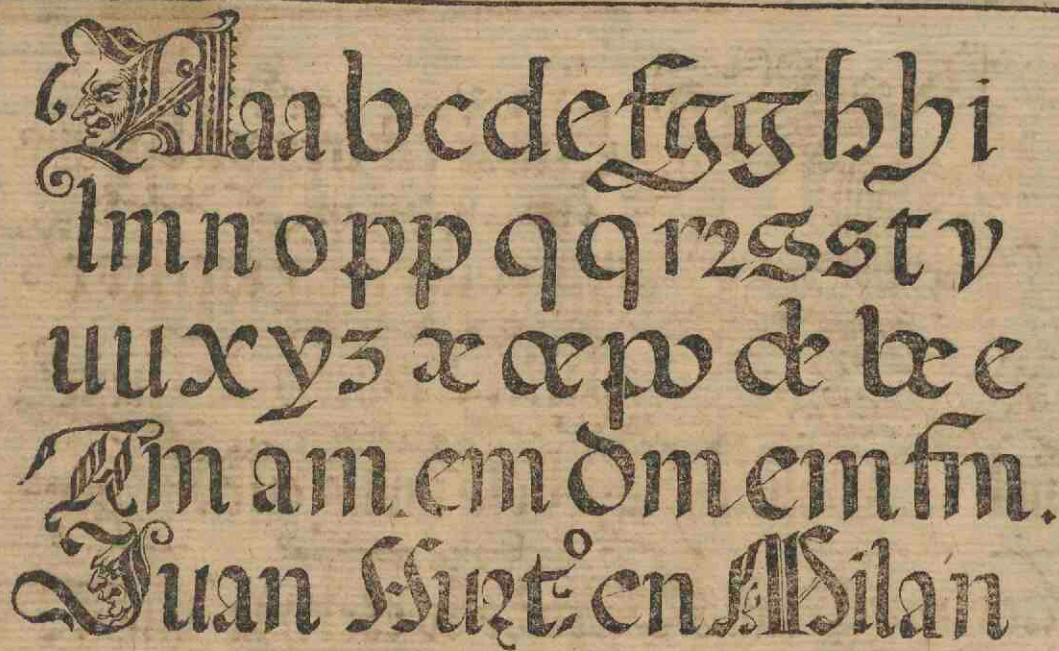 Aaa b c d e f g g h h i
l m n o p p q q r ꝛ S s t v
u u x y ʒ æ œ po de be e
Am am em dm em fm.
Juan Hurꝛt.º en Milan